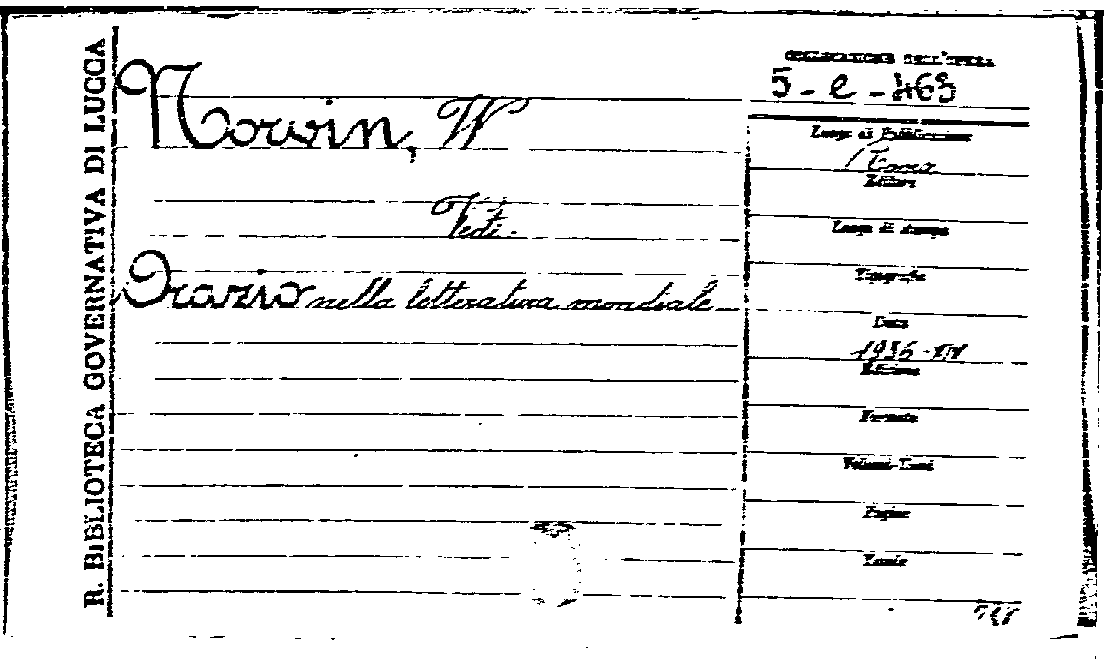 R. BIBLIOTECA GOVERNATIVA DI LUCCA
COLLOCAZIONE DELL'OPERA
5-e-463
Norvin, W
Luogo di Pubblicazione
Roma
Editore
Vedi.
Luogo di stampa
Orazio nella letteratura mondiale
Tipografia
Data
1936-XIV
Edizione
Formato
Volumi-Tomi
Pagine
Tavole